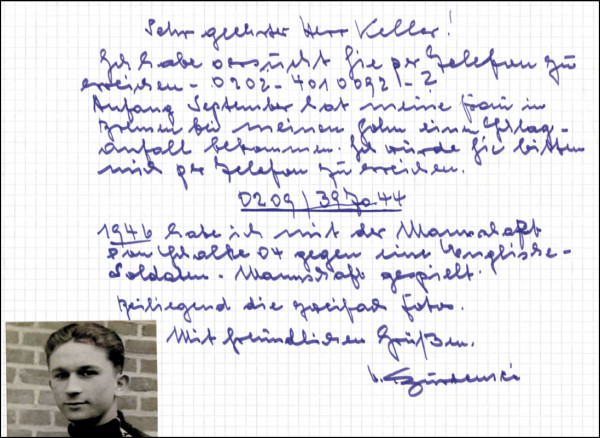 Sehr geehrter Herr Keller!
Ich habe versucht Sie per Telefon zu
erreichen - 0202-
Anfang September hat meine Frau in
Bremen bei meinen Sohn einen Schlag-
anfall bekommen. Ich würde Sie bitten
mich per Telefon zu erreichen.
0209/
1946 habe ich mit der Mannschaft
von Schalke 04 gegen eine Englische-
Soldaten-Mannschaft gespielt.
Beiliegend die zweifach Fotos.
Mit freundlichen Grüßen.